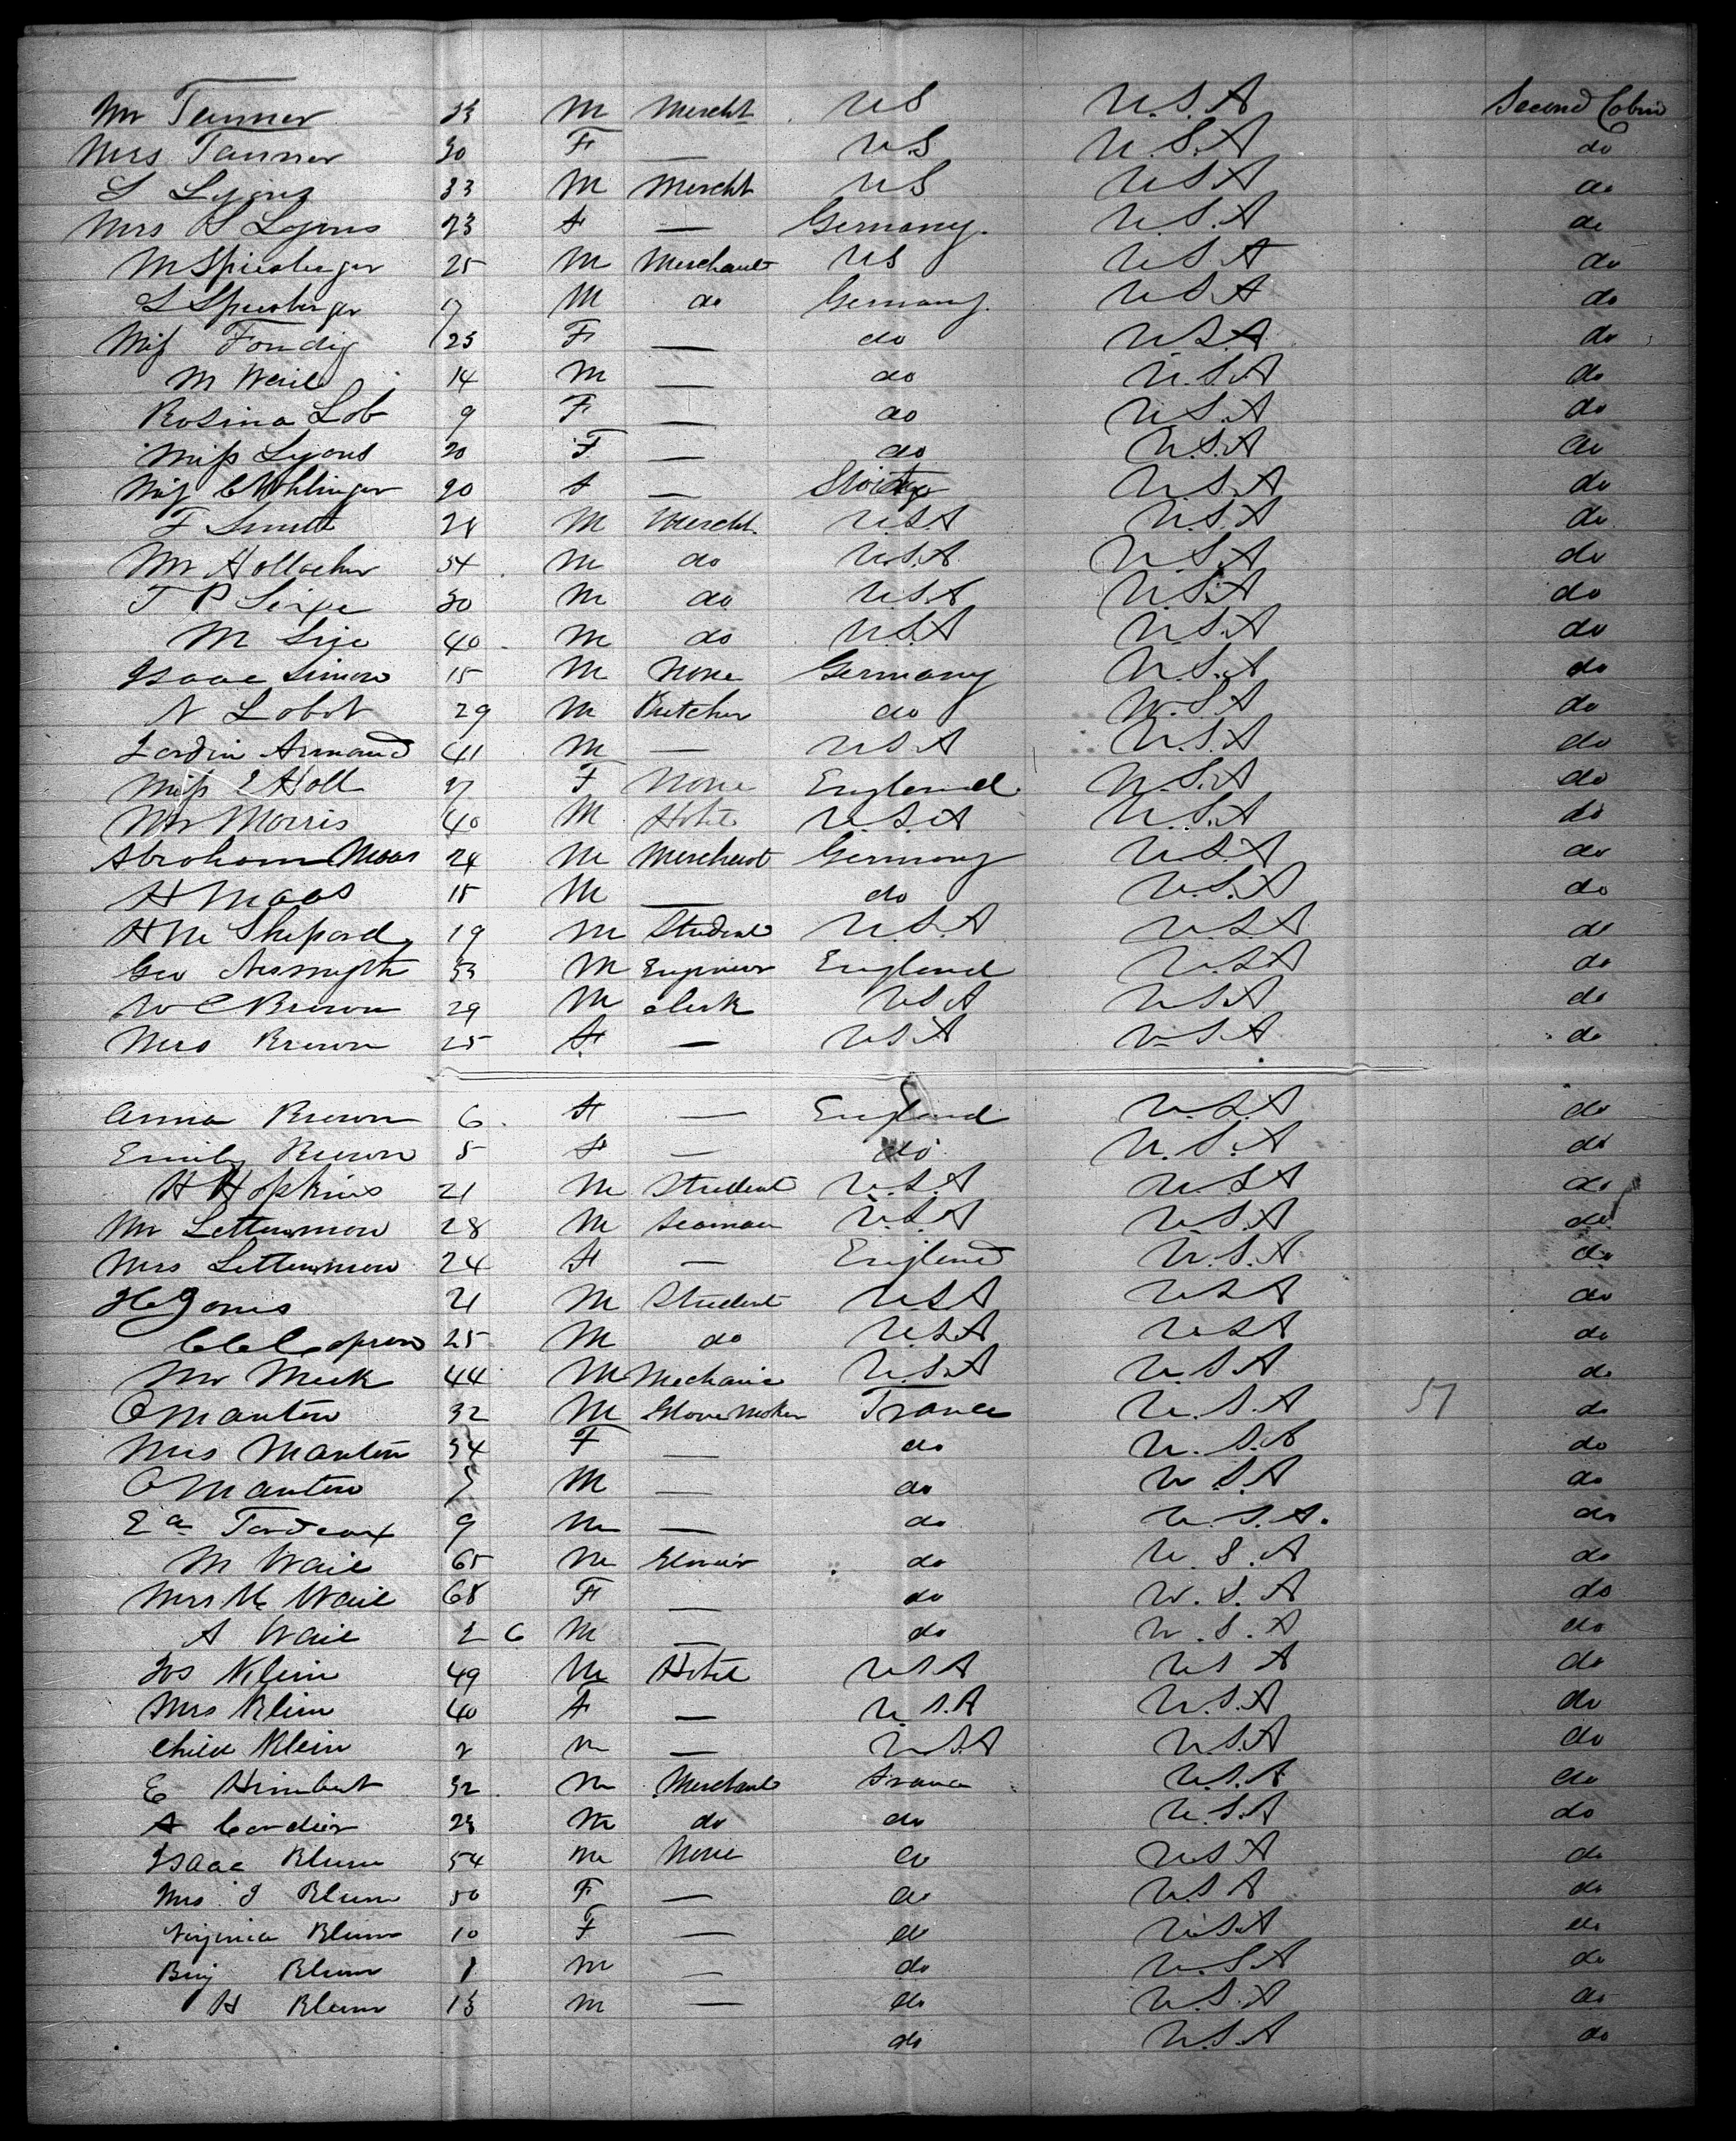 Mr Tanner 33 M Mercht US U.S.A Second Cabin
Mrs Tanner 30 F — U.S U.S.A do
S Lyons 33 M Mercht US U.S.A do
Mrs S Lyons 23 F — Germany. U.S.A do
M Spiesberger 25 M Merchant US U.S.A do
S Spiesberger 17 M do Germany. U.S.A do
Miss Fondig 23 F — do U.S.A do
M Weil 14 M — do U.S.A do
Rosina Lob 9 F — do U.S.A do
Miss Lyons 20 F — do U.S.A do
Miss 20 F — U.S.A do
F Smith 28 M Mercht. U.S.A U.S.A do
Mr Hollacher 54 M do U.S.A U.S.A do
J P 30 M do U.S.A U.S.A do
M 40 M do U.S.A U.S.A do
Isaac Simon 15 M None Germany U.S.A do
N Lobot 29 M Butcher do U.S.A do
Jardin Armand 41 M — U S A U.S.A do
Miss E Holl 27 F None England U.S.A do
Mr Morris 40 M Hotel U.S.A U.S.A do
Abraham Maas 24 M Merchant Germany U.S.A do
H Maas 15 M — do U.S.A do
H M Shepard 19 M Student U.S.A U.S.A do
Geo Nesmyth 53 M Engineer England U.S.A do
W C Brown 29 M clerk U S A U S A do
Mrs Brown 25 F — U S A U S A do
Anna Brown 6 F — England U.S.A do
Emily Brown 5 F — do U.S.A do
H Hopkins 21 M Student U.S.A U.S.A do
Mr Letterman 28 M Seaman U.S.A U.S.A do
Mrs Letterman 24 F — England U.S.A do
H C Jones 21 M Student U S A U S A do
C C Capron 25 M do U.S.A U S A do
Mr Meek 44 M Mechanic U.S.A U.S.A do
O Manton 32 M Glove Maker France U.S.A 57 do
Mrs Manton 34 F — do U.S.A do
O Manton 5 M — do U.S.A do
9 M — do U.S.A. do
M Weil 65 M do U.S.A do
Mrs M Weil 68 F — do U.S.A do
A Weil 2 6 M — do U.S.A do
Jos Klein 49 M Hotel U S A U S A do
Mrs Klein 40 F — U.S.A U.S.A do
Child Klein 2 M — U.S.A U.S.A do
E Himbert 32 M Merchant France U.S.A do
A Cordier 23 M do do U.S.A do
Isaac Blum 54 M None do U S A do
Mrs I Blum 50 F — do U.S A do
Virginia Blum 10 F — do U.S.A do
Benj Blum 1 M — do U.S.A do
H Blum 13 M — do U.S.A do
do U.S.A do